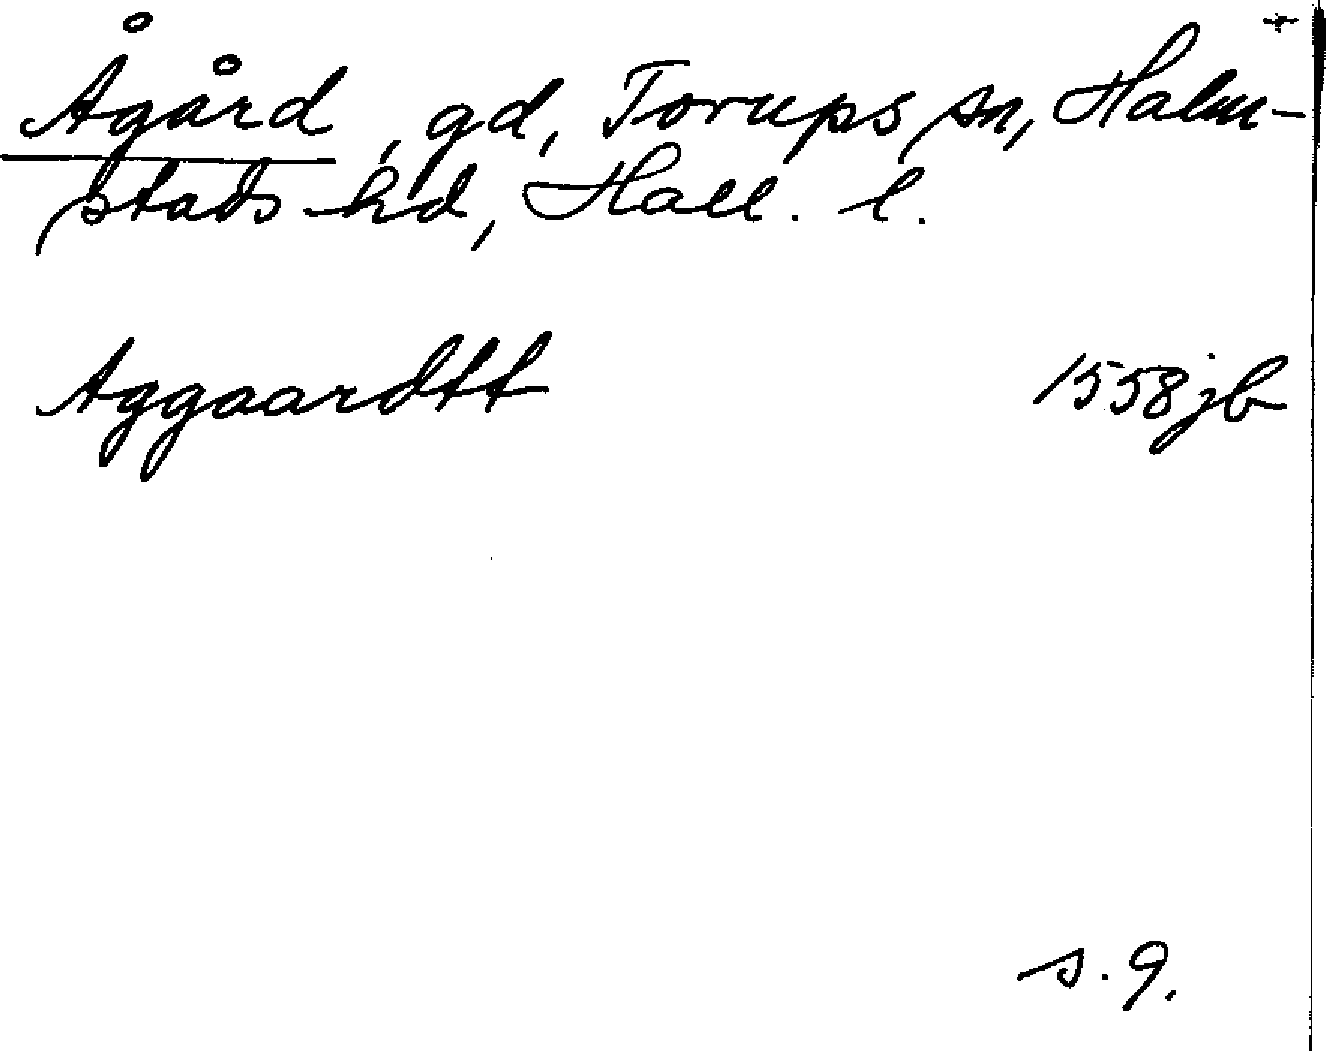 Ågård, gd, Torups sn, Halm-
stads hd, Hall. l.
Aggaardtt 1558 jb
s. 9.